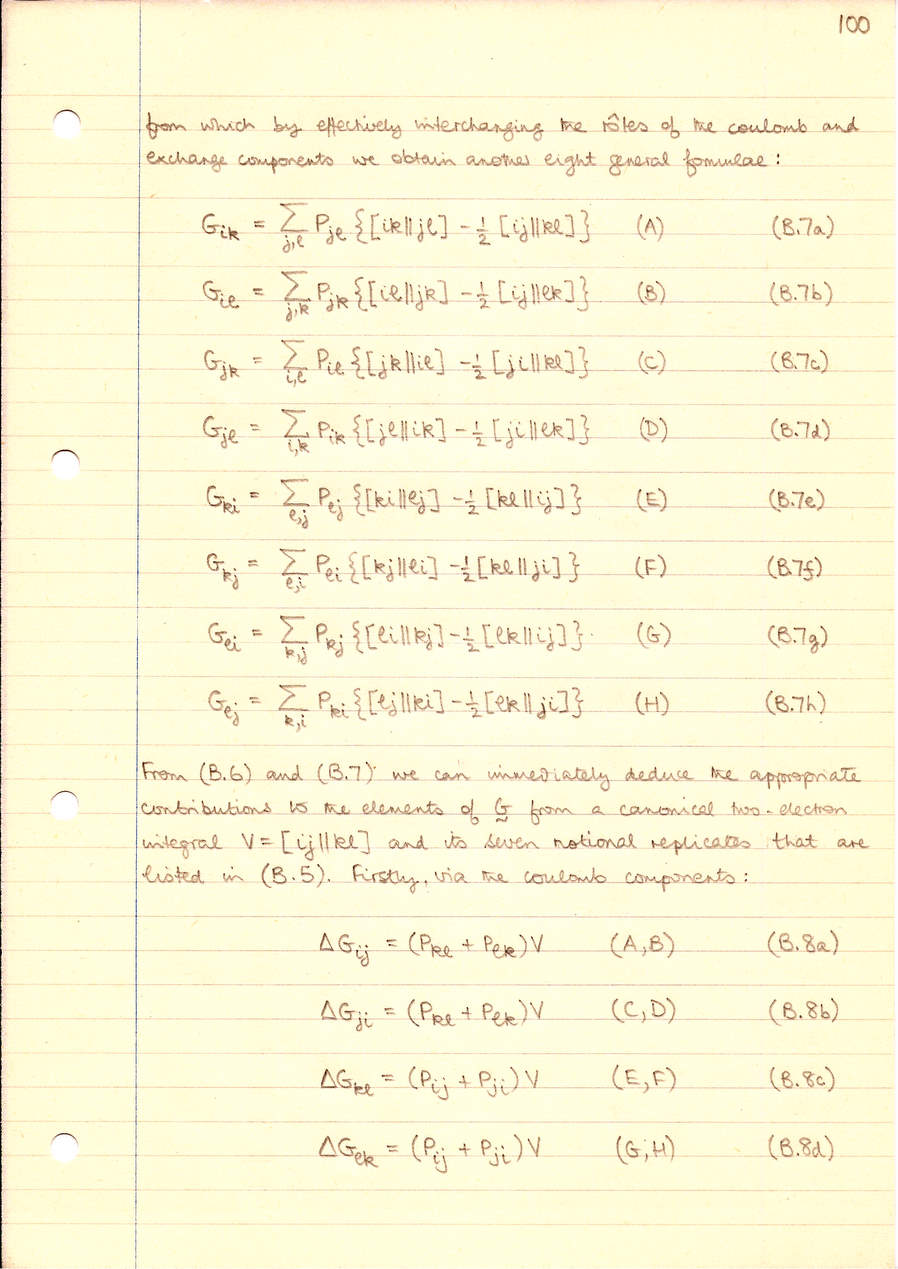 100
from which by effectively interchanging the rôles of the coulomb and
exchange components we obtain another eight general formulae :
G_ik = Σ_j,ℓ P_jℓ {[ik||jℓ] - ½ [ij||kℓ]} (A) (B.7a)
G_iℓ = Σ_j,k P_jk {[iℓ||jk] - ½ [ij||ℓk]} (B) (B.7b)
G_jk = Σ_i,ℓ P_iℓ {[jk||iℓ] - ½ [ji||kℓ]} (C) (B.7c)
G_jℓ = Σ_i,k P_ik {[jℓ||ik] - ½ [ji||ℓk]} (D) (B.7d)
G_ki = Σ_ℓ,j P_ℓj {[ki||ℓj] - ½ [kℓ||ij]} (E) (B.7e)
G_kj = Σ_ℓ,i P_ℓi {[kj||ℓi] - ½ [kℓ||ji]} (F) (B.7f)
G_ℓi = Σ_k,j P_kj {[ℓi||kj] - ½ [ℓk||ij]} (G) (B.7g)
G_ℓj = Σ_k,i P_ki {[ℓj||ki] - ½ [ℓk||ji]} (H) (B.7h)
From (B.6) and (B.7) we can immediately deduce the appropriate
contributions to the elements of G̰ from a canonical two-electron
integral V = [ij||kℓ] and its seven notional replicates that are
listed in (B.5). Firstly, via the coulomb components :
ΔG_ij = (P_kℓ + P_ℓk) V (A,B) (B.8a)
ΔG_ji = (P_kℓ + P_ℓk) V (C,D) (B.8b)
ΔG_kℓ = (P_ij + P_ji) V (E,F) (B.8c)
ΔG_ℓk = (P_ij + P_ji) V (G,H) (B.8d)